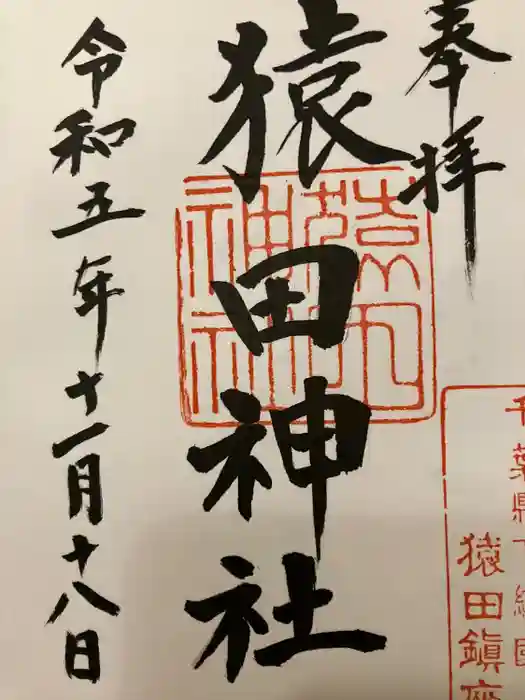 奉拝
千葉縣下總國
猿田鎮座
猿田神社
猿田神社
令和五年十一月十八日